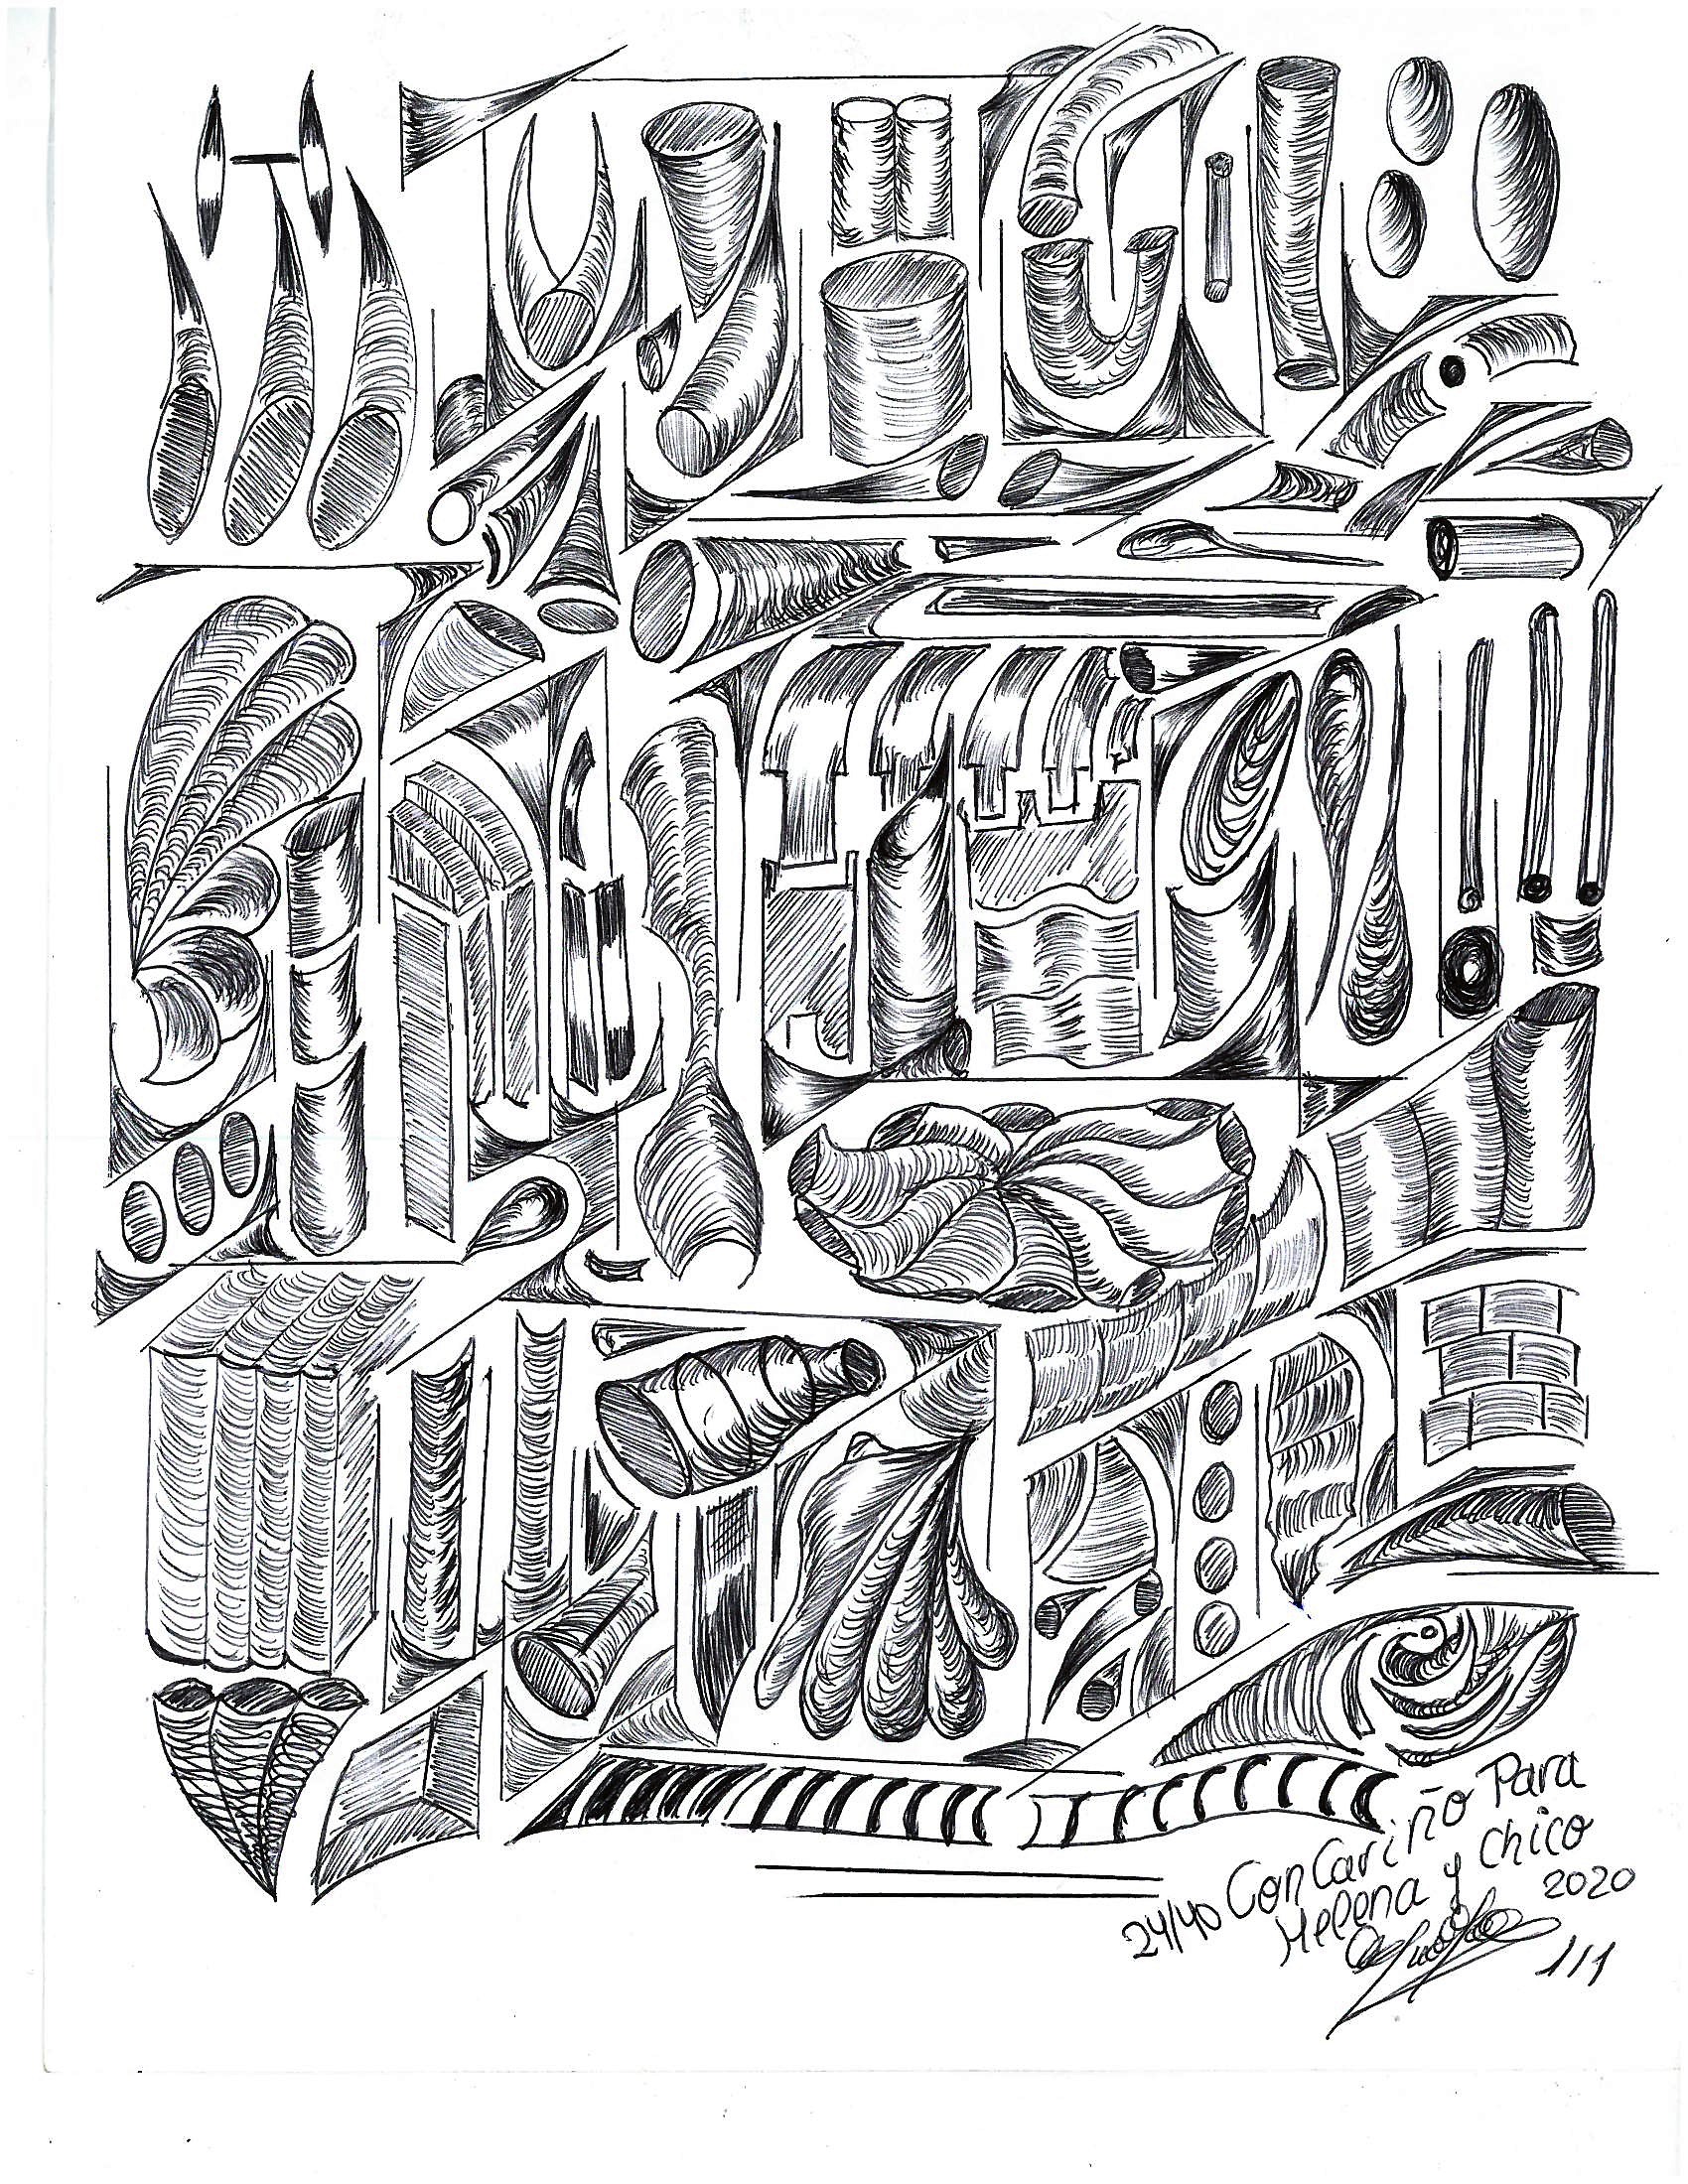 Con Cariño Para
Helena y Chico
24/40
2020
1/1